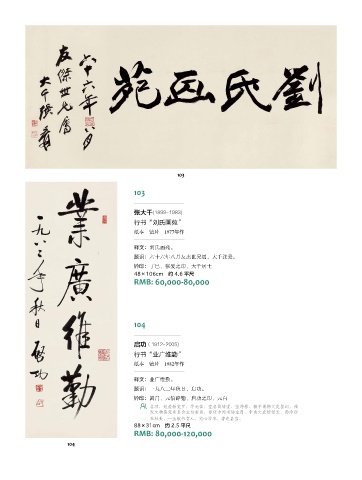 劉氏画苑
六十六年八月
友傑世兄屬
大千張爰
103
業廣維勤
一九八二年秋日
啟功
104
103
张大千(1899-1983)
行书“刘氏画苑”
纸本 镜片 1977年作
释文:刘氏画苑。
题识:六十六年八月友杰世兄属,大千张爰。
48×106cm 约 4.6 平尺
RMB: 60,000-80,000
104
启功(1912-2005)
行书“业广维勤”
纸本 镜片 1982年作
释文:业广维勤。
题识:一九八二年秋日,启功。
88×31cm 约 2.5 平尺
RMB: 80,000-120,000